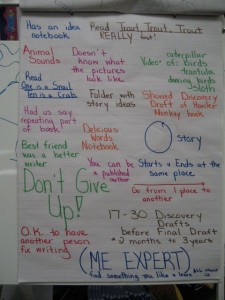 Has an idea
notebook
Read Trout, Trout, Trout
REALLY fast!
Animal
Sounds
Doesn't
know what
the pictures
look like
caterpillar
Video of: birds
tarantula
dancing birds
Sloth
Read
One is a Snail
Ten is a Crab
Folder with
story ideas
Showed Discovery
Draft of Howler
Monkey book
Had us say
repeating part
of book
Delicious
Words
Notebook
Story
Best friend
was a better
writer
You can be
a published
author
Starts & Ends at the
same place
Don't Give
Up!
Go from 1 place to
another
17-30 Discovery
Drafts
before Final Draft
* 2 months to 3 years
O.K. to have
another person
fix writing
(ME EXPERT)
find something you like & learn all about it